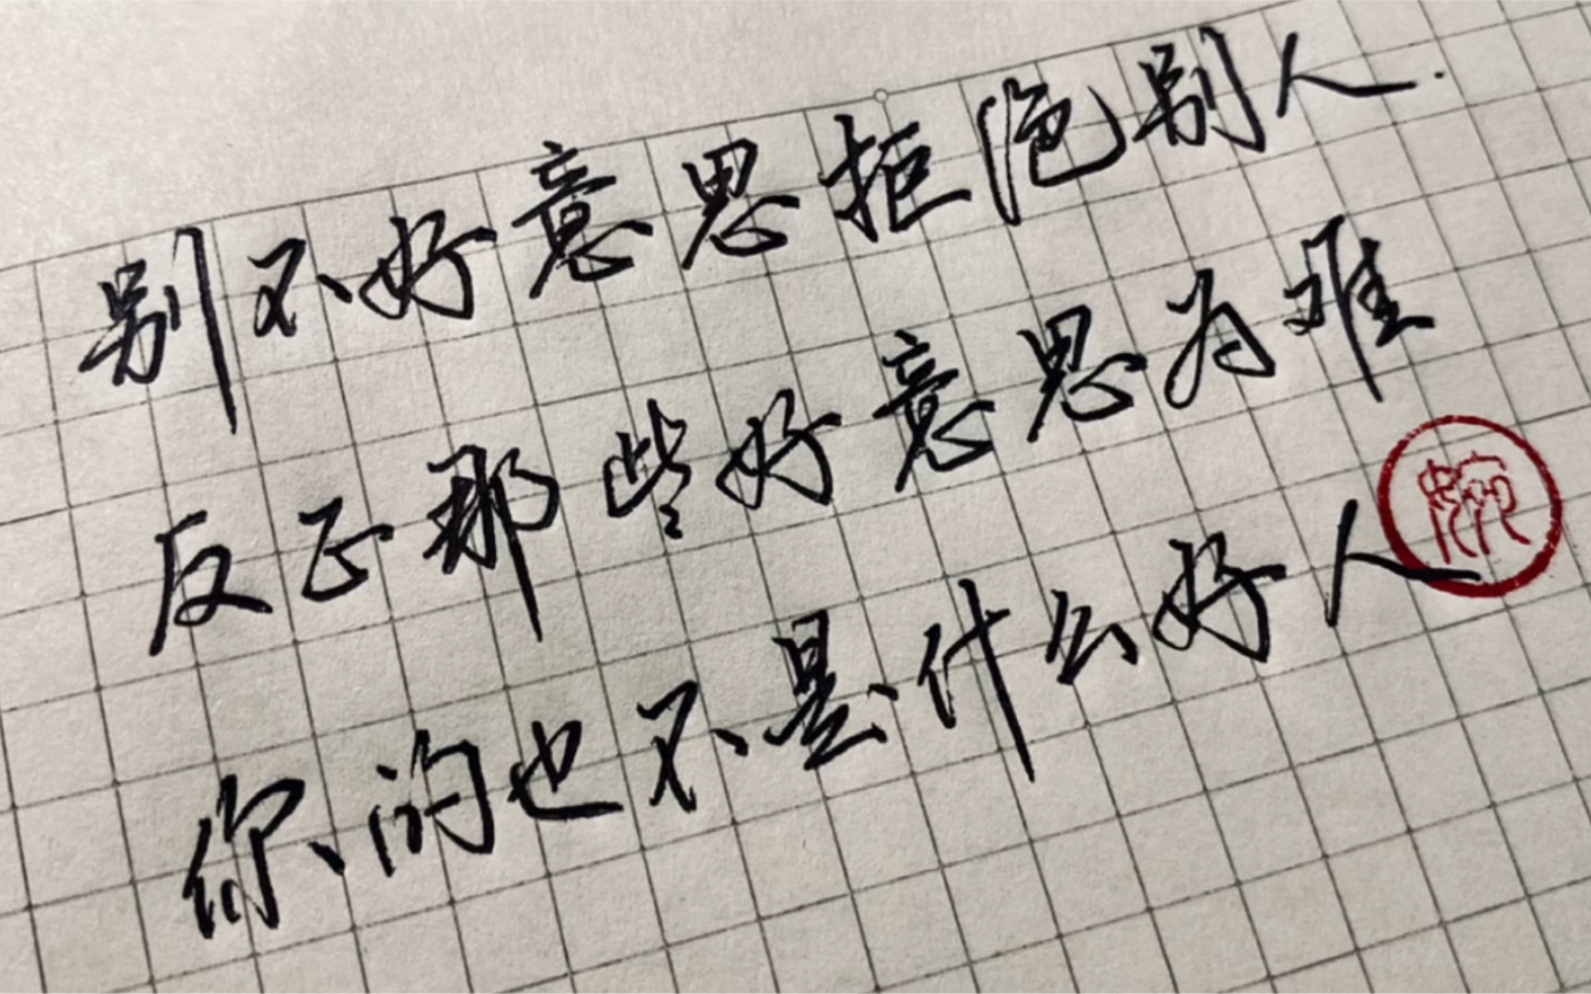 别不好意思拒绝别人.
反正那些好意思为难
你的也不是什么好人